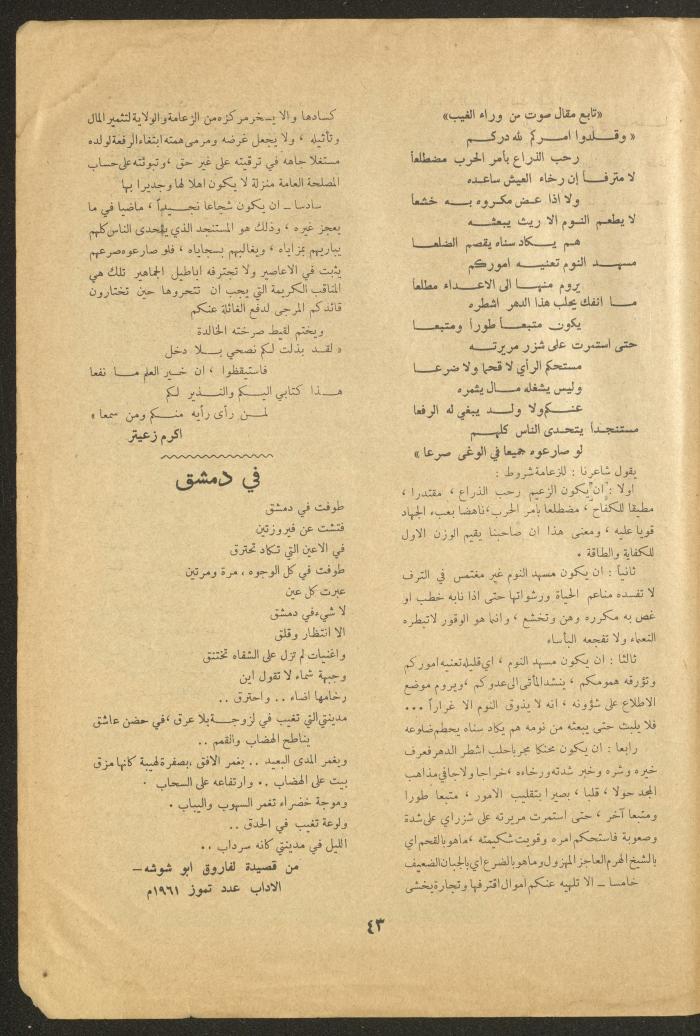 «تابع مقال صوت من وراء الغيب»
« وقلدوا امركم لله دركم
رحب الذراع بأمر الحرب مضطلعا
لا مترفاً إن رخاء العيش ساعده
ولا اذا عض مكروه به خشعا
لا يطعم النوم الا ريث يبعثه
هم يكاد سناه يقصم الضلعا
مسهد النوم تعنيه اموركم
يروم منها الى الاعداء مطلعا
ما انفك يحلب هذا الدهر اشطره
يكون متبعاً طوراً ومتبعا
حتى استمرت على شزر مريرته
مستحكم الرأي لا قحما ولا ضرعا
وليس يشغله مال يثمره
عنكم ولا ولد يبغي له الرفعا
مستنجداً يتحدى الناس كلهم
لو صارعوه جميعا في الوغى صرعا »
يقول شاعرنا : للزعامة شروط :
اولا : ان يكون الزعيم رحب الذراع ، مقتدرا ،
مطيقا للكفاح ، مضطلعا بأمر الحرب ، ناهضا بعبء الجهاد
قويا عليه ، ومعنى هذا ان صاحبنا يقيم الوزن الاول
للكفاية والطاقة .
ثانياً : ان يكون مسهد النوم غير مغتمس في الترف
لا تفسده مناعم الحياة ورشواتها حتى اذا نابه خطب او
غص به مكرره وهن وتخشع ، وانما هو الوقور لا تبطره
النعماء ولا تفجعه البأساء
ثالثا : ان يكون مسهد النوم ، اي قليله تعنيه اموركم
وتؤرقه همومكم ، ينشد المأتى الى عدوكم ، ويروم موضع
الاطلاع على شؤونه ، انه لا يذوق النوم الا غراراً ...
فلا يلبث حتى يبعثه من نومه هم يكاد سناه يحطم ضلوعه
رابعا : ان يكون محنكا مجربا حلب اشطر الدهر فعرف
خيره وشره وخبر شدته ورخاءه ، خراجا ولاجا في مذاهب
المجد حولا ، قلبا ، بصيرا بتقليب الامور ، متبعا طورا
ومتبعا آخر ، حتى استمرت مريرته على شزر اي على شدة
وصعوبة فاستحكم امره وقويت شكيمته ، ماهو بالقحم اي
بالشيخ الهرم العاجز المهزول وماهو بالضرع اي بالجبان الضعيف
خامسا ــ الا تلهيه عنكم اموال اقترفها وتجارة يخشى
كسادها والا يسخر مركزه من الزعامة والولاية لتثمير المال
وتأثيله ، ولا يجعل غرضه ومرمى همته ابتغاء الرفعة لولده
مستغلا جاهه في ترقيته على غير حق ، وتبوئته على حساب
المصلحة العامة منزلة لا يكون اهلا لها وجديرا بها
سادسا ــ ان يكون شجاعا نجيداً ، ماضيا في ما
يعجز غيره ، وذلك هو المستنجد الذي يتحدى الناس كلهم
يباريهم بمزاياه ، ويغالبهم بسجاياه ، فلو صارعوه صرعهم
يثبت في الاعاصير ولا تجترفه اباطيل الجماهير تلك هي
المناقب الكريمة التي يجب ان تتحروها حين تختارون
قائدكم المرجى لدفع الغائلة عنكم
ويختم لقيط صرخته الخالدة
« لقد بذلت لكم نصحي بلا دخل
فاستيقظوا ، ان خير العلم ما نفعا
هذا كتابي اليكم والنذير لكم
لمن رأى رأيه منكم ومن سمعا »
اكرم زعيتر
في دمشق
طوفت في دمشق
فتشت عن فيروزتين
في الاعين التي تكاد تحترق
طوفت في كل الوجوه ، مرة ومرتين
عبرت كل عين
لا شيء في دمشق
الا انتظار وقلق
واغنيات لم تزل على الشفاه تختنق
وجبهة شماء لا تقول اين
رخامها اضاء .. واحترق ..
مدينتي التي تغيب في لزوجة بلا عرق ، في حضن عاشق
يناطح الهضاب والقمم ..
ويغمر المدى البعيد .. يغمر الافق ، بصفرة لهيبة كانها مزق
بيت على الهضاب .. وارتفاعه على السحاب .
وموجة خضراء تغمر السهوب واليباب .
ولوعة تغيب في الحدق ..
الليل في مدينتي كانه سرداب ..
من قصيدة لفاروق ابو شوشه ــ
الاداب عدد تموز ١٩٦١م
٤٣